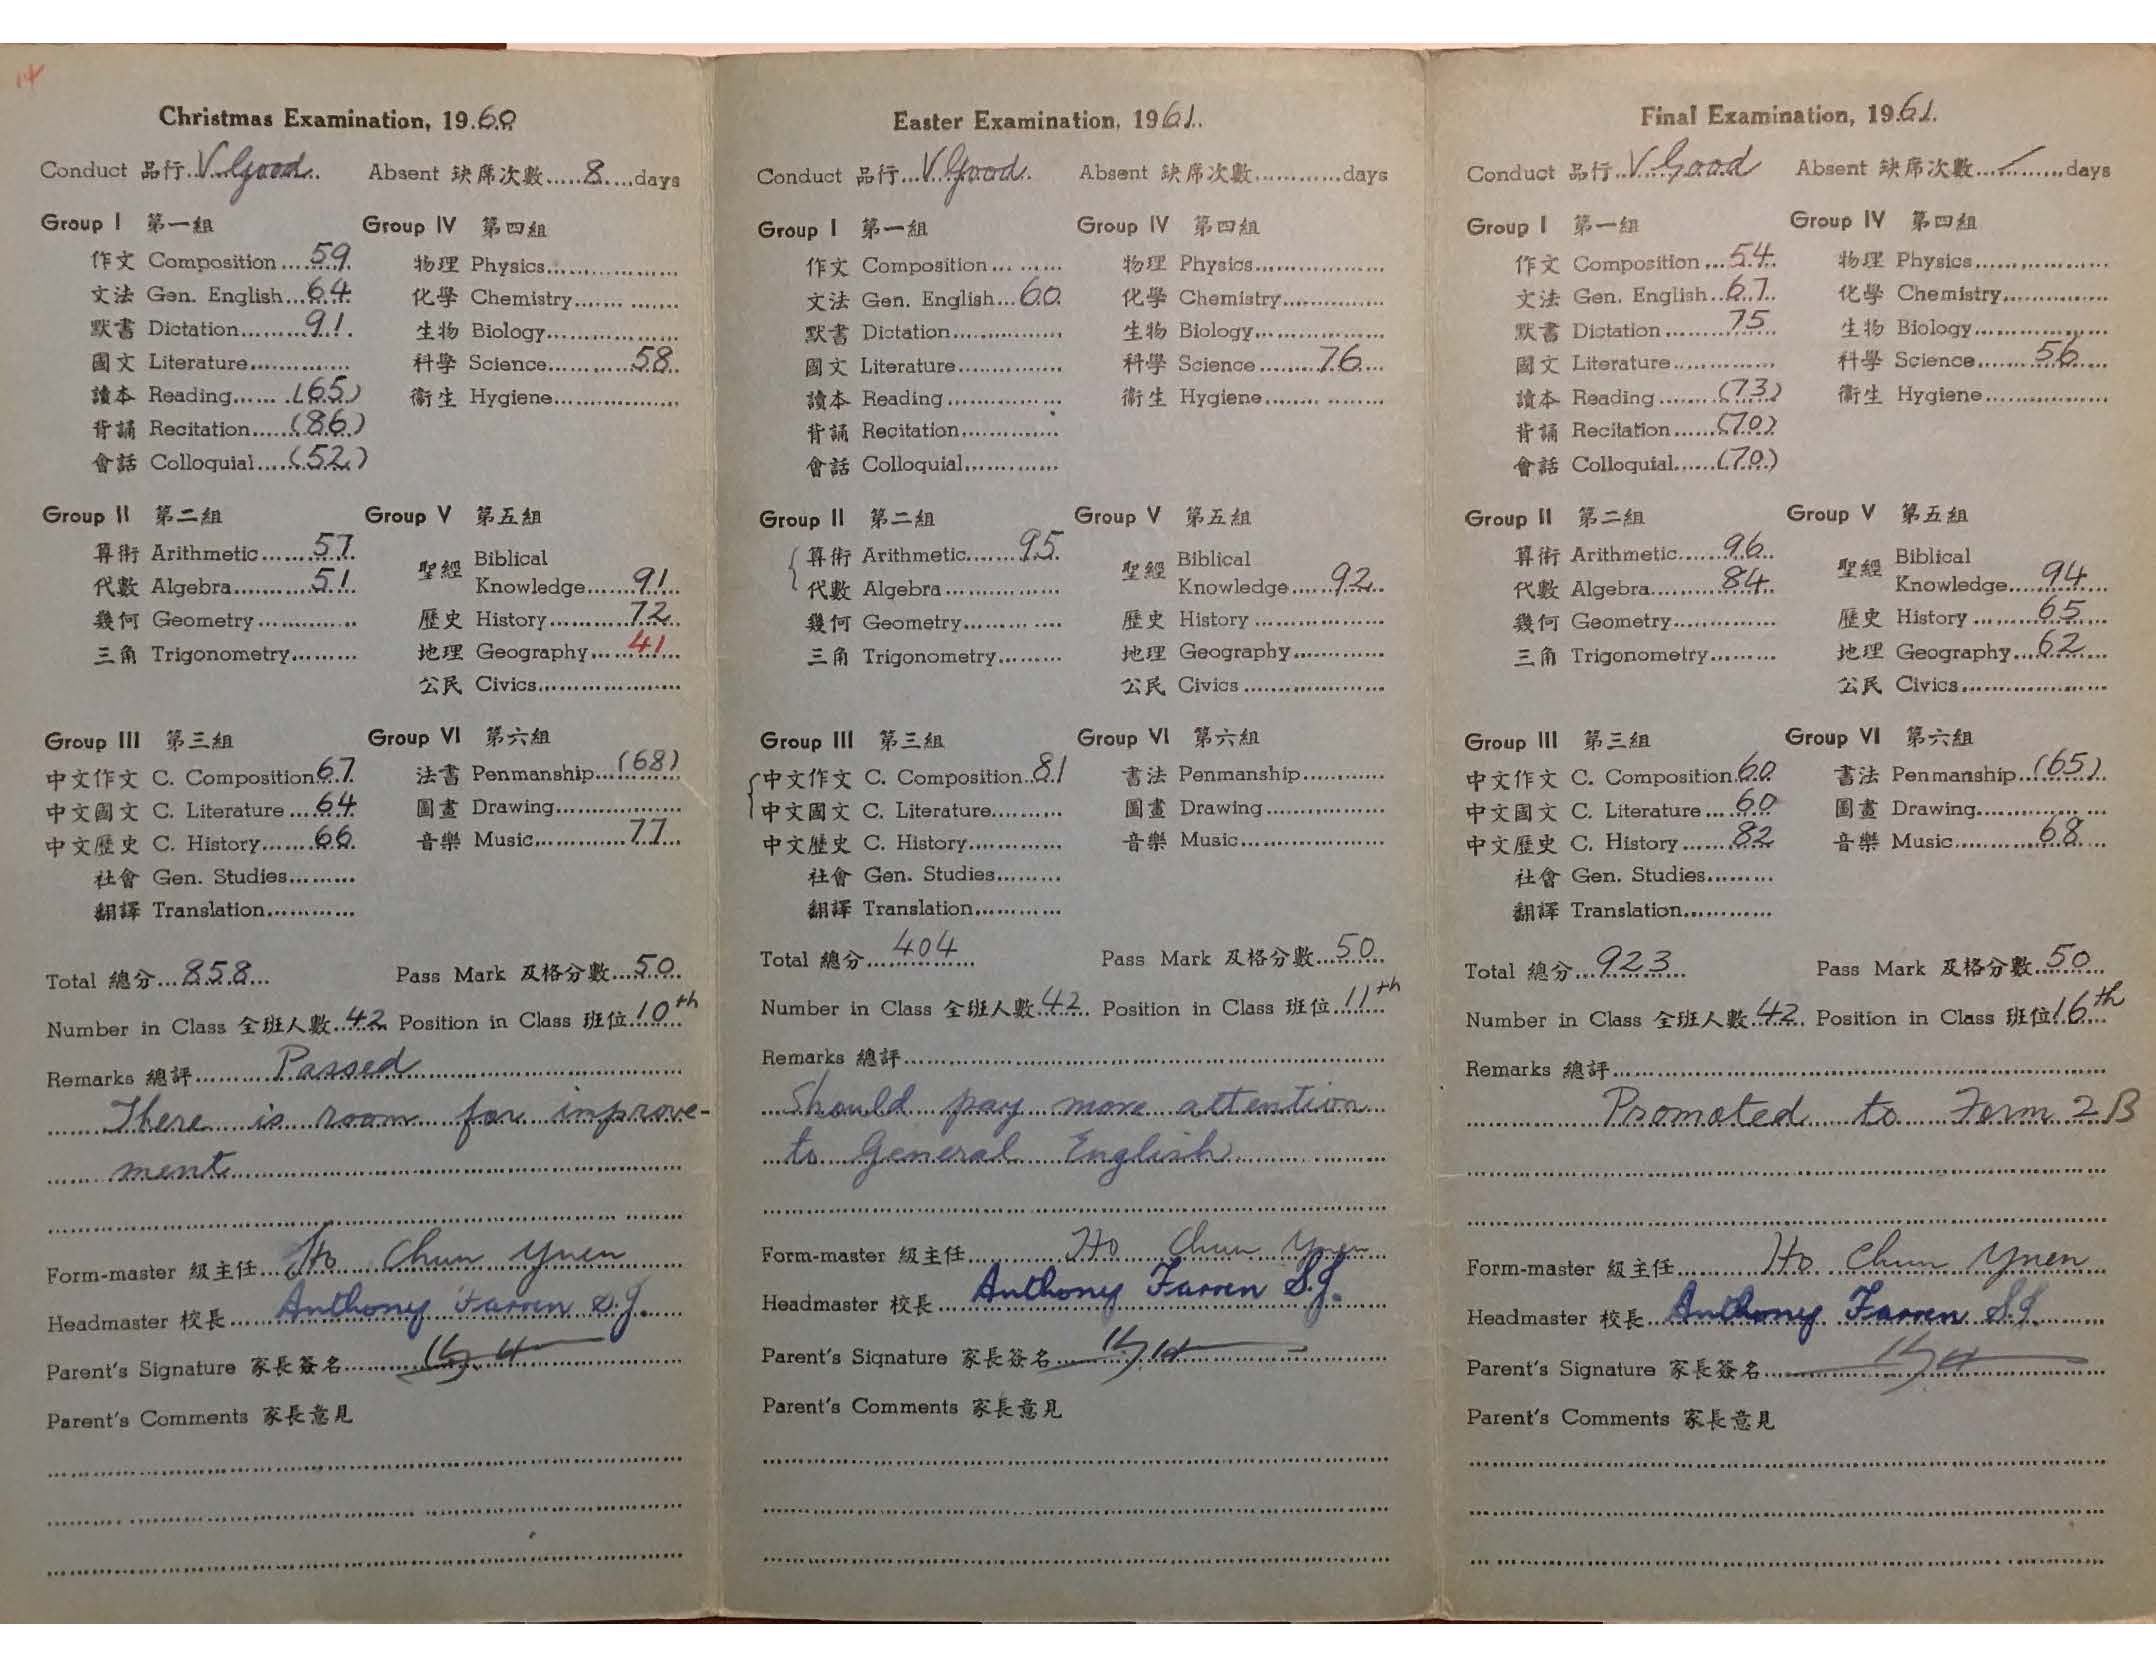 14
Christmas Examination, 1960
Conduct 品行 V. Good Absent 缺席次數 8 days
Group I 第一組 Group IV 第四組
作文 Composition 59 物理 Physics
文法 Gen. English 64 化學 Chemistry
默書 Dictation 91 生物 Biology
國文 Literature 科學 Science 58
讀本 Reading (65) 衞生 Hygiene
背誦 Recitation (86)
會話 Colloquial (52)
Group II 第二組 Group V 第五組
算術 Arithmetic 57 聖經 Biblical
代數 Algebra 51 Knowledge 91
幾何 Geometry 歷史 History 72
三角 Trigonometry 地理 Geography 41
公民 Civics
Group III 第三組 Group VI 第六組
中文作文 C. Composition 67 法書 Penmanship (68)
中文國文 C. Literature 64 圖畫 Drawing
中文歷史 C. History 66 音樂 Music 77
社會 Gen. Studies
翻譯 Translation
Total 總分 858 Pass Mark 及格分數 50
Number in Class 全班人數 42 Position in Class 班位 10th
Remarks 總評 Passed
There is room for improve-
ment
Form-master 級主任 Ho Chun Yuen
Headmaster 校長 Anthony Farren S.J.
Parent's Signature 家長簽名
Parent's Comments 家長意見
Easter Examination, 1961
Conduct 品行 V. Good Absent 缺席次數 days
Group I 第一組 Group IV 第四組
作文 Composition 物理 Physics
文法 Gen. English 60 化學 Chemistry
默書 Dictation 生物 Biology
國文 Literature 科學 Science 76
讀本 Reading 衞生 Hygiene
背誦 Recitation
會話 Colloquial
Group II 第二組 Group V 第五組
算術 Arithmetic 95 聖經 Biblical
代數 Algebra Knowledge 92
幾何 Geometry 歷史 History
三角 Trigonometry 地理 Geography
公民 Civics
Group III 第三組 Group VI 第六組
中文作文 C. Composition 81 書法 Penmanship
中文國文 C. Literature 圖畫 Drawing
中文歷史 C. History 音樂 Music
社會 Gen. Studies
翻譯 Translation
Total 總分 404 Pass Mark 及格分數 50
Number in Class 全班人數 42 Position in Class 班位 11th
Remarks 總評
Should pay more attention
to General English
Form-master 級主任 Ho Chun Yuen
Headmaster 校長 Anthony Farren S.J.
Parent's Signature 家長簽名
Parent's Comments 家長意見
Final Examination, 1961
Conduct 品行 V. Good Absent 缺席次數 / days
Group I 第一組 Group IV 第四組
作文 Composition 54 物理 Physics
文法 Gen. English 67 化學 Chemistry
默書 Dictation 75 生物 Biology
國文 Literature 科學 Science 56
讀本 Reading (73) 衞生 Hygiene
背誦 Recitation (70)
會話 Colloquial (70)
Group II 第二組 Group V 第五組
算術 Arithmetic 96 聖經 Biblical
代數 Algebra 84 Knowledge 94
幾何 Geometry 歷史 History 65
三角 Trigonometry 地理 Geography 62
公民 Civics
Group III 第三組 Group VI 第六組
中文作文 C. Composition 60 書法 Penmanship (65)
中文國文 C. Literature 60 圖畫 Drawing
中文歷史 C. History 82 音樂 Music 68
社會 Gen. Studies
翻譯 Translation
Total 總分 923 Pass Mark 及格分數 50
Number in Class 全班人數 42 Position in Class 班位 16th
Remarks 總評
Promoted to Form 2B
Form-master 級主任 Ho Chun Yuen
Headmaster 校長 Anthony Farren S.J.
Parent's Signature 家長簽名
Parent's Comments 家長意見